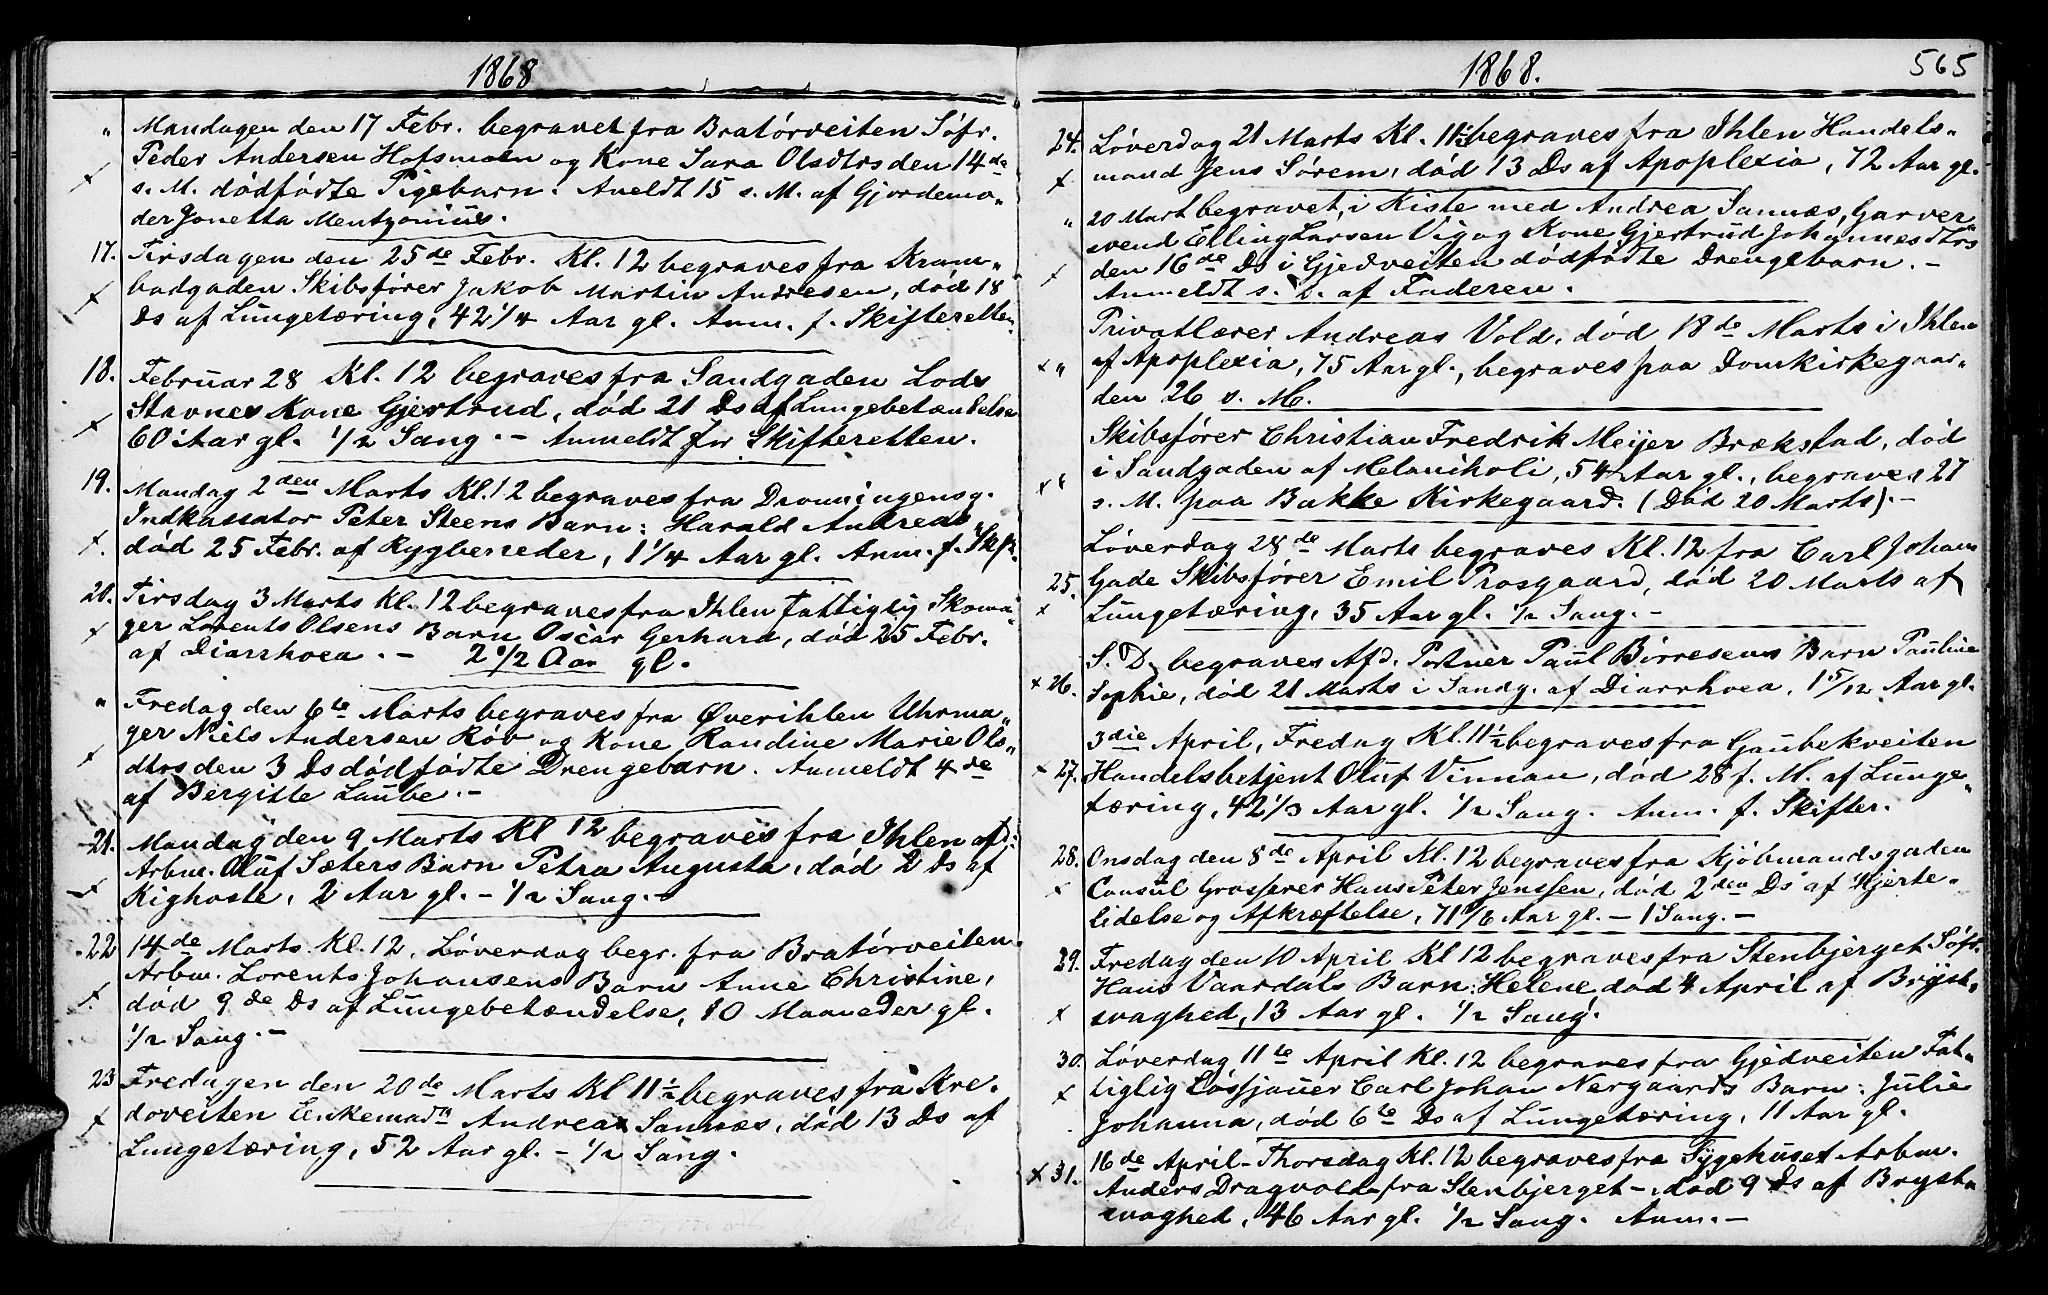 1868
" Mandagen den 17 Febr. begravet fra Bratørveiten Søfr.
Peder Andersen Hofsmoen og Kone Sara Olsdtrs den 14de
x s. M. dødfødte Pigebarn. Aneldt 15 s. M. af Gjordemo„
der Jonetta Mentzonius.
17. Tirsdagen den 25de Febr. Kl. 12 begraves fra Kram„
x badgaden Skibsfører Jakob Martin Andresen, død 18
Ds af Lungetæring, 42 1/4 Aar gl. Anm. f. Skifteretten.
18. Februar 28 Kl. 12 begraves fra Sandgaden Lods
Stavnes Kone Gjertrud, død 21 Ds af Lungebetændelse
x 60 Aar gl. 1/2 Sang. – Anmeldt for Skifteretten.
19. Mandag 2den Marts Kl. 12 begraves fra Dronningensg.
Indkassator Peter Steens Barn: Harald Andreas
x. død 25 Febr. af Rygbeneder, 1 1/4 Aar gl. Anm. f. Skf.
20. Tirsdag 3 Marts Kl. 12 begraves fra Ihlen fattiglig Skoma„
x ger Lorents Olsens Barn Oscar Gerhard, død 25 Febr.
af Diarrhoea. – 2 1/2 Aar gl.
" Fredag den 6te Marts begraves fra Øverihlen Uhrma„
ger Niels Andersen Røv og Kone Randine Marie Ols„
x dtrs den 3 Ds dødfødte Drengebarn. Anmeldt 4de
af Birgitte Laube. –
21. Mandag den 9 Marts Kl 12 begraves fra Ihlen afd:
Arbm. Oluf Sæters Barn Petra Augusta, død 2 Ds af
x Kighoste, 2 Aar gl. – 1/2 Sang. –
22 14de Marts Kl. 12, Løverdag begr. fra Bratørveiten
Arbm. Lorents Johansens Barn Anne Christine,
x død 9de Ds af Lungebetændelse, 10 Maaneder gl.
1/2 Sang. –
23 Fredagen den 20de Marts Kl 11 1/2 begraves fra Kre„
x doveiten Enkemadm Andrea Sannæs, død 13 Ds af
Lungetæring, 52 Aar gl. – 1/2 Sang.
1868.
565
24. Løverdag 21 Marts Kl. 11 1/2 begraves fra Ihlen Handels„
x mand Jens Sørem, død 13 Ds af Apoplexia, 72 Aar gl.
" 20 Mart begravet, i Kiste med Andrea Sannæs, Garver„
svend Elling Larsen Vig og Kone Gjertrud Johannesdtrs
x den 16de Ds i Gjedveiten dødfødte Drengebarn. –
Anmeldt s. D. af Faderen.
Privatlærer Andreas Vold, død 18de Marts i Ihlen
x " af Apoplexia, 75 Aar gl., begraves paa Domkirkegaar„
den 26 s. M.
Skibsfører Christian Fredrik Meijer Brækstad, død
x " i Sandgaden af Melankoli, 54 Aar gl., begraves 27
s. M. paa Bakke Kirkegaard. (Død 20 Marts). –
Løverdag 28de Marts begraves Kl. 12 fra Carl Johans
25. Gade Skibsfører Emil Prosgaard, død 20 Marts af
x Lungetæring, 35 Aar gl. 1/2 Sang. –
S. D. begraves Afd. Portner Paul Birresens Barn Pauline
x 26. Sophie, død 21 Marts i Sandg. af Diarrhoea, 1 5/12 Aar gl.
3die April, Fredag Kl. 11 1/2 begraves fra Gaubekveiten
x 27. Handelsbetjent Oluf Vinnan, død 28 f. M. af Lunge„
tæring, 42 1/3 Aar gl. 1/2 Sang. Anm. f. Skifter.
28. Onsdag den 8de April Kl. 12 begraves fra Kjøbmandsgaden
x Consul Grosserer Hans Peter Jenssen, død 2den Ds af Hjerte„
lidelse og Afkræftelse, 71 1/6 Aar gl. – 1 Sang. –
29. Fredag den 10 April Kl 12 begraves fra Stenbjerget Søfr.
Hans Vaardals Barn: Helene, død 4 April af Bryst„
x svaghed, 13 Aar gl. 1/2 Sang.
30. Løverdag 11te April Kl. 12 begraves fra Gjedveiten Fat„
x tiglig Løssjauer Carl Johan Nergaards Barn: Julie
Johanna, død 6te Ds af Lungetæring, 11 Aar gl.
x 31. 16de April – Thorsdag Kl. 12 begraves fra Sygehuset Arbm.
Anders Dragvold fra Stenbjerget –, død 9 Ds af Bryst„
svaghed, 46 Aar gl. 1/2 Sang. Anm. –